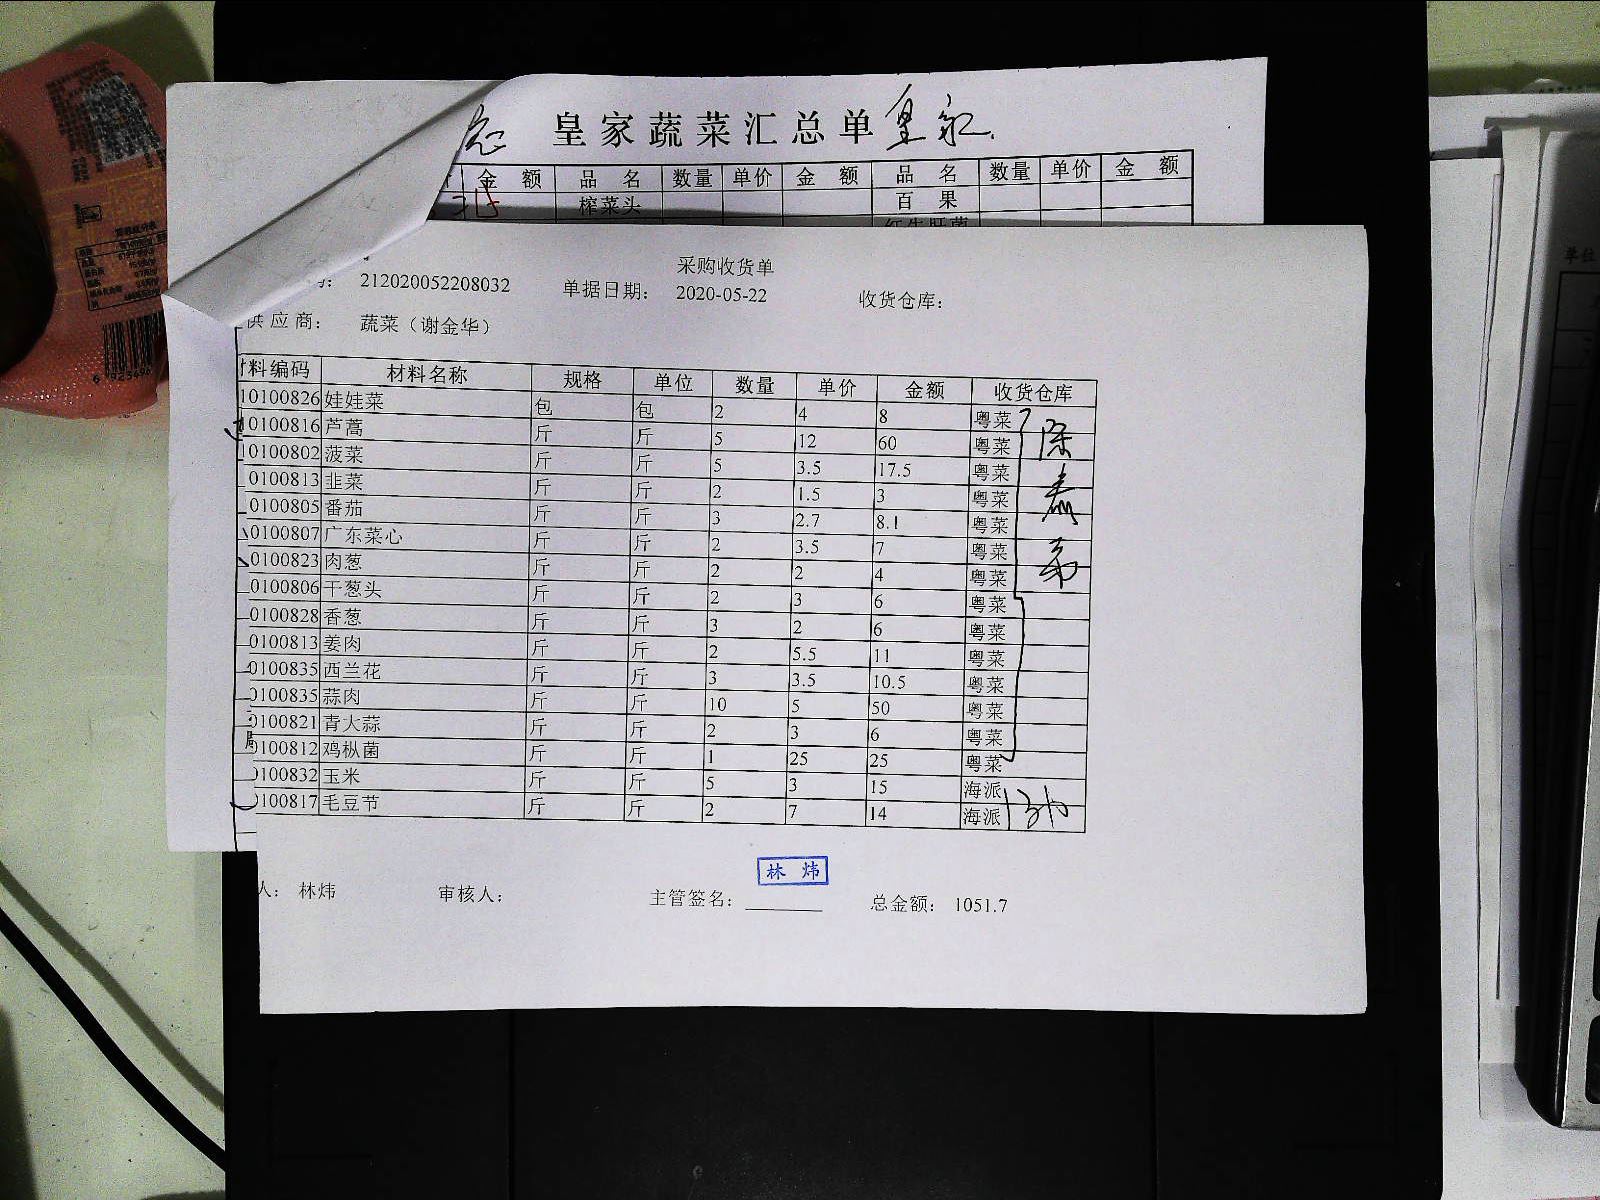 皇家蔬菜汇总单 皇家
金 额 品 名 数量 单价 金 额 品 名 数量 单价 金 额
榨菜头 百 果
采购收货单
212020052208032 单据日期: 2020-05-22 收货仓库:
供应商: 蔬菜（谢金华）
材料编码 材料名称 规格 单位 数量 单价 金额 收货仓库
10100826 娃娃菜 包 包 2 4 8 粤菜
10100816 芦蒿 斤 斤 5 12 60 粤菜
10100802 菠菜 斤 斤 5 3.5 17.5 粤菜
0100813 韭菜 斤 斤 2 1.5 3 粤菜
0100805 番茄 斤 斤 3 2.7 8.1 粤菜
0100807 广东菜心 斤 斤 2 3.5 7 粤菜
0100823 肉葱 斤 斤 2 2 4 粤菜
0100806 干葱头 斤 斤 2 3 6 粤菜
0100828 香葱 斤 斤 3 2 6 粤菜
0100813 姜肉 斤 斤 2 5.5 11 粤菜
0100835 西兰花 斤 斤 3 3.5 10.5 粤菜
0100835 蒜肉 斤 斤 10 5 50 粤菜
0100821 青大蒜 斤 斤 2 3 6 粤菜
0100812 鸡枞菌 斤 斤 1 25 25 粤菜
0100832 玉米 斤 斤 5 3 15 海派
0100817 毛豆节 斤 斤 2 7 14 海派
林 炜
人: 林炜 审核人: 主管签名: 总金额: 1051.7